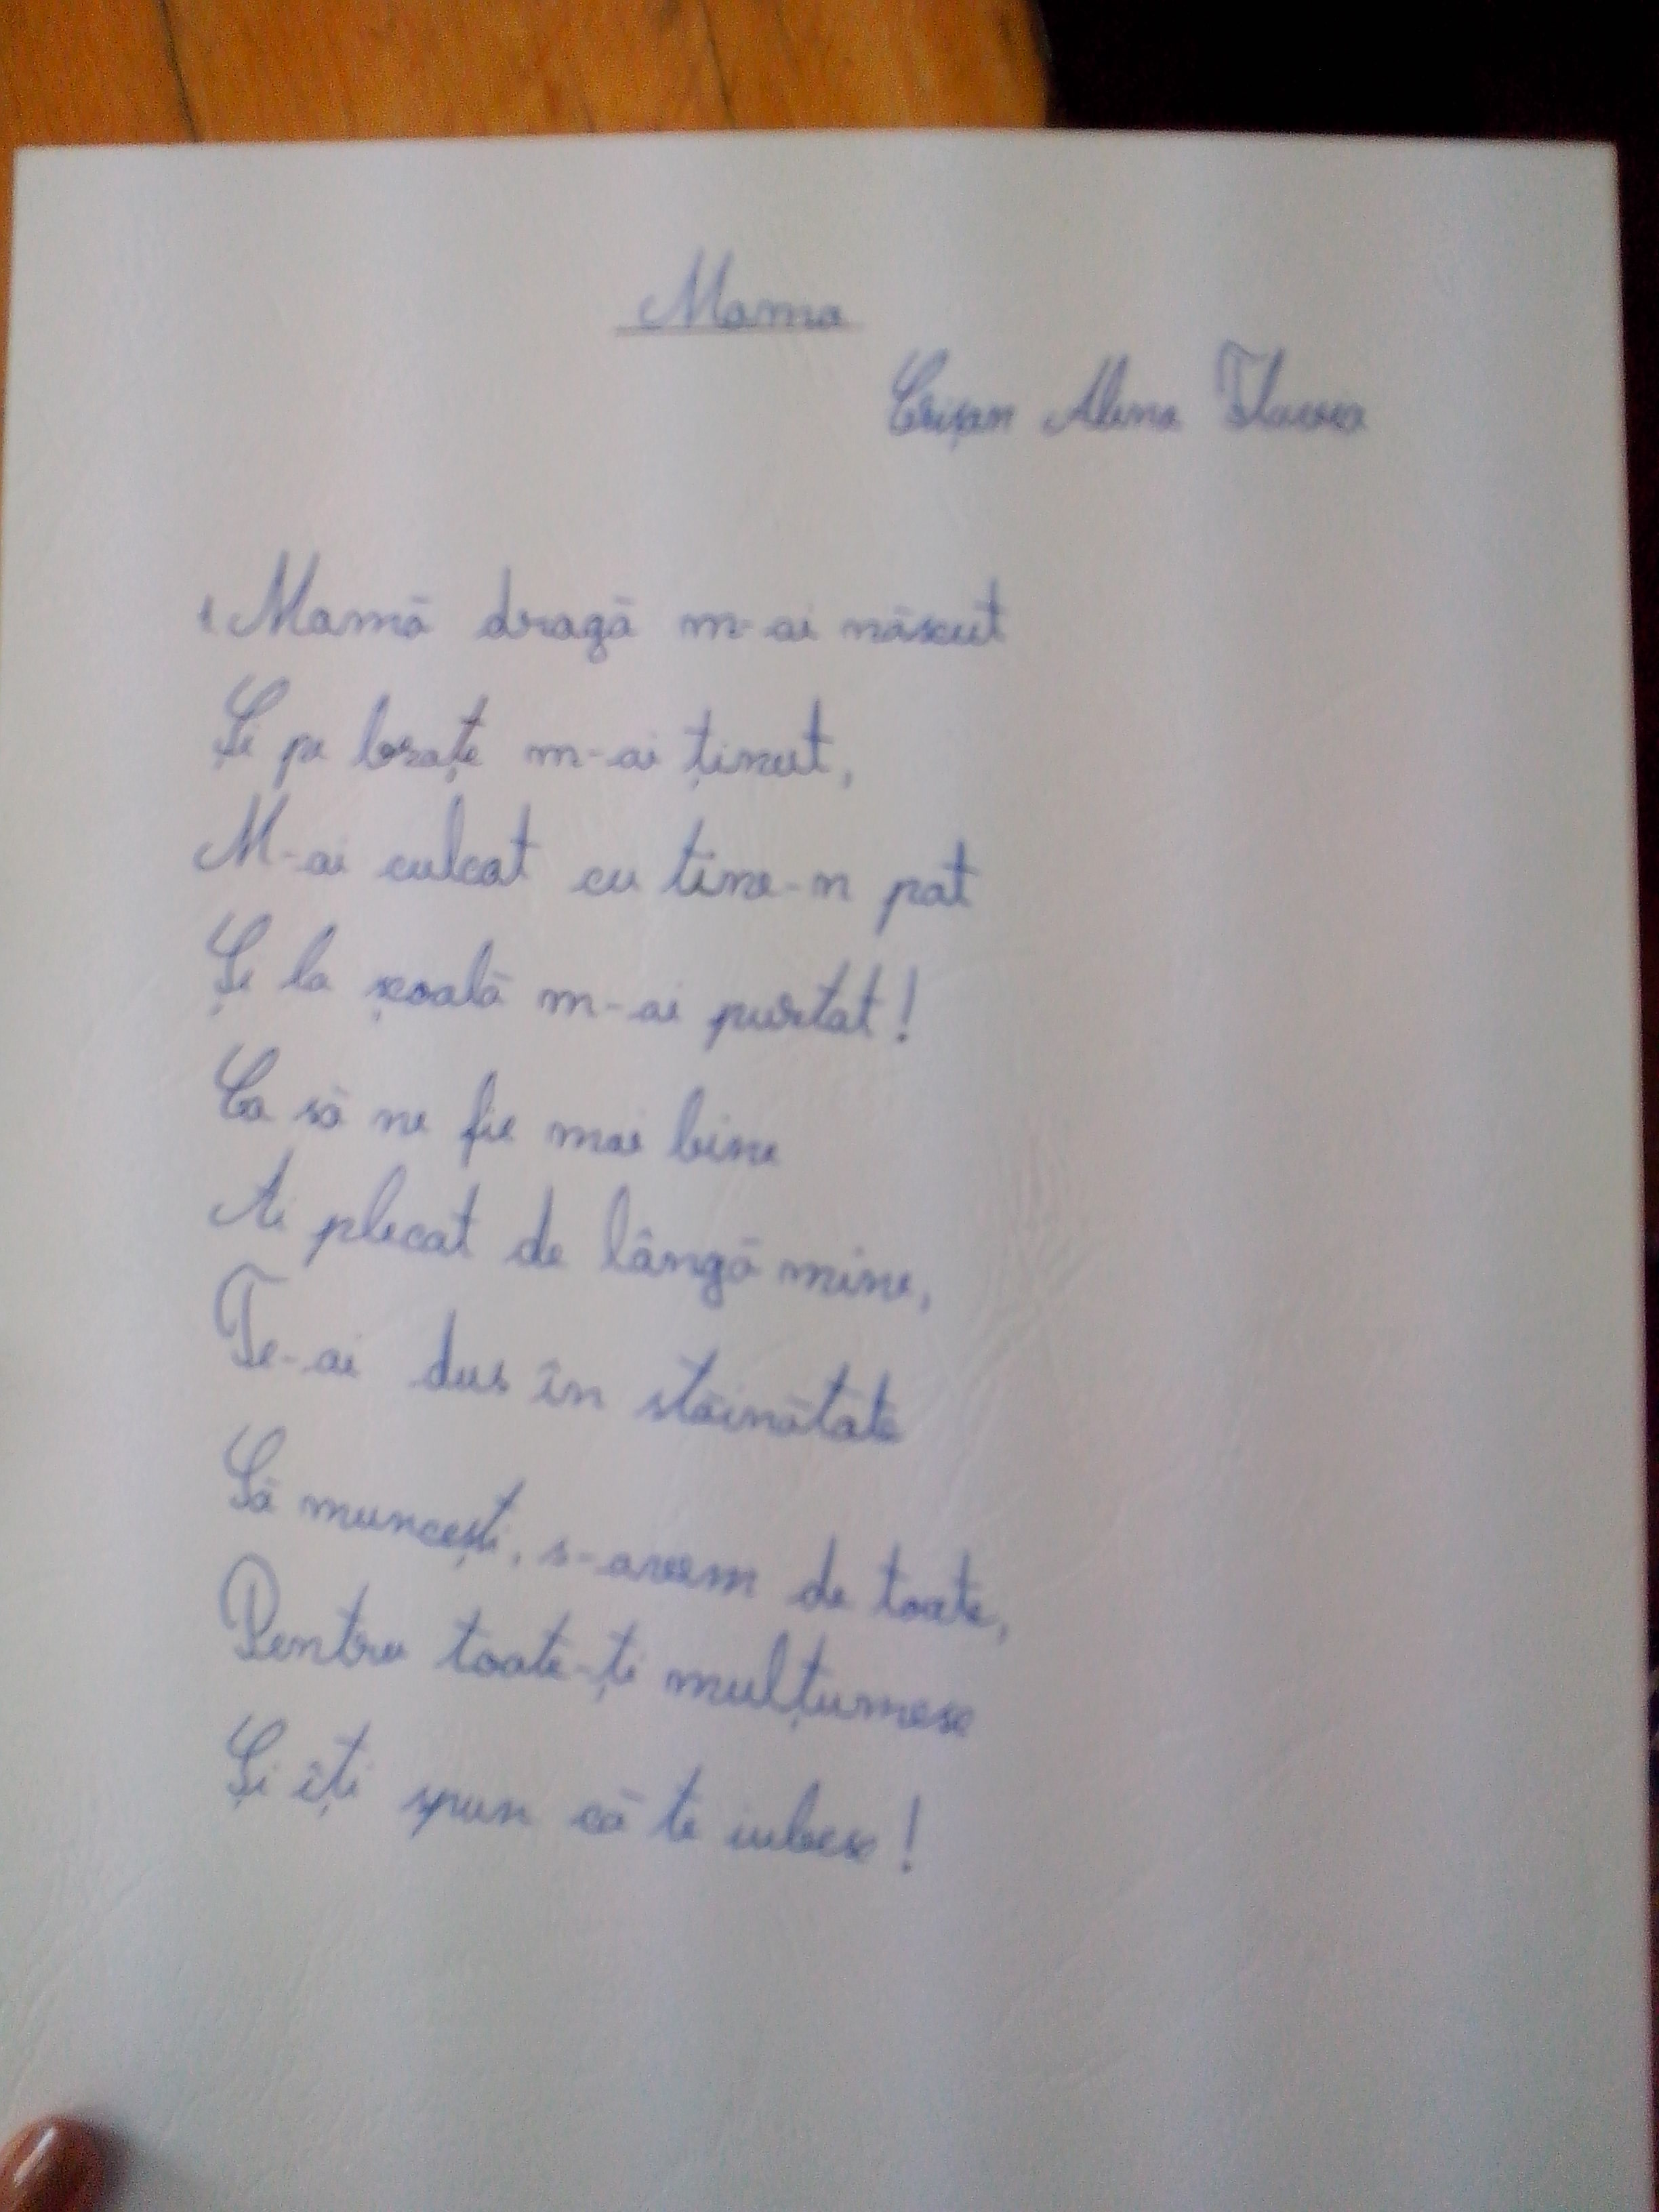 Mama
Crișan Alina Flavia
1. Mamă dragă m-ai născut
Și pe brațe m-ai ținut,
M-ai culcat cu tine-n pat
Și la școală m-ai purtat!
Ca să ne fie mai bine
Ai plecat de lângă mine,
Te-ai dus în stăinătate
Să muncești, s-avem de toate,
Pentru toate-ți mulțumesc
Și îți spun că te iubesc!